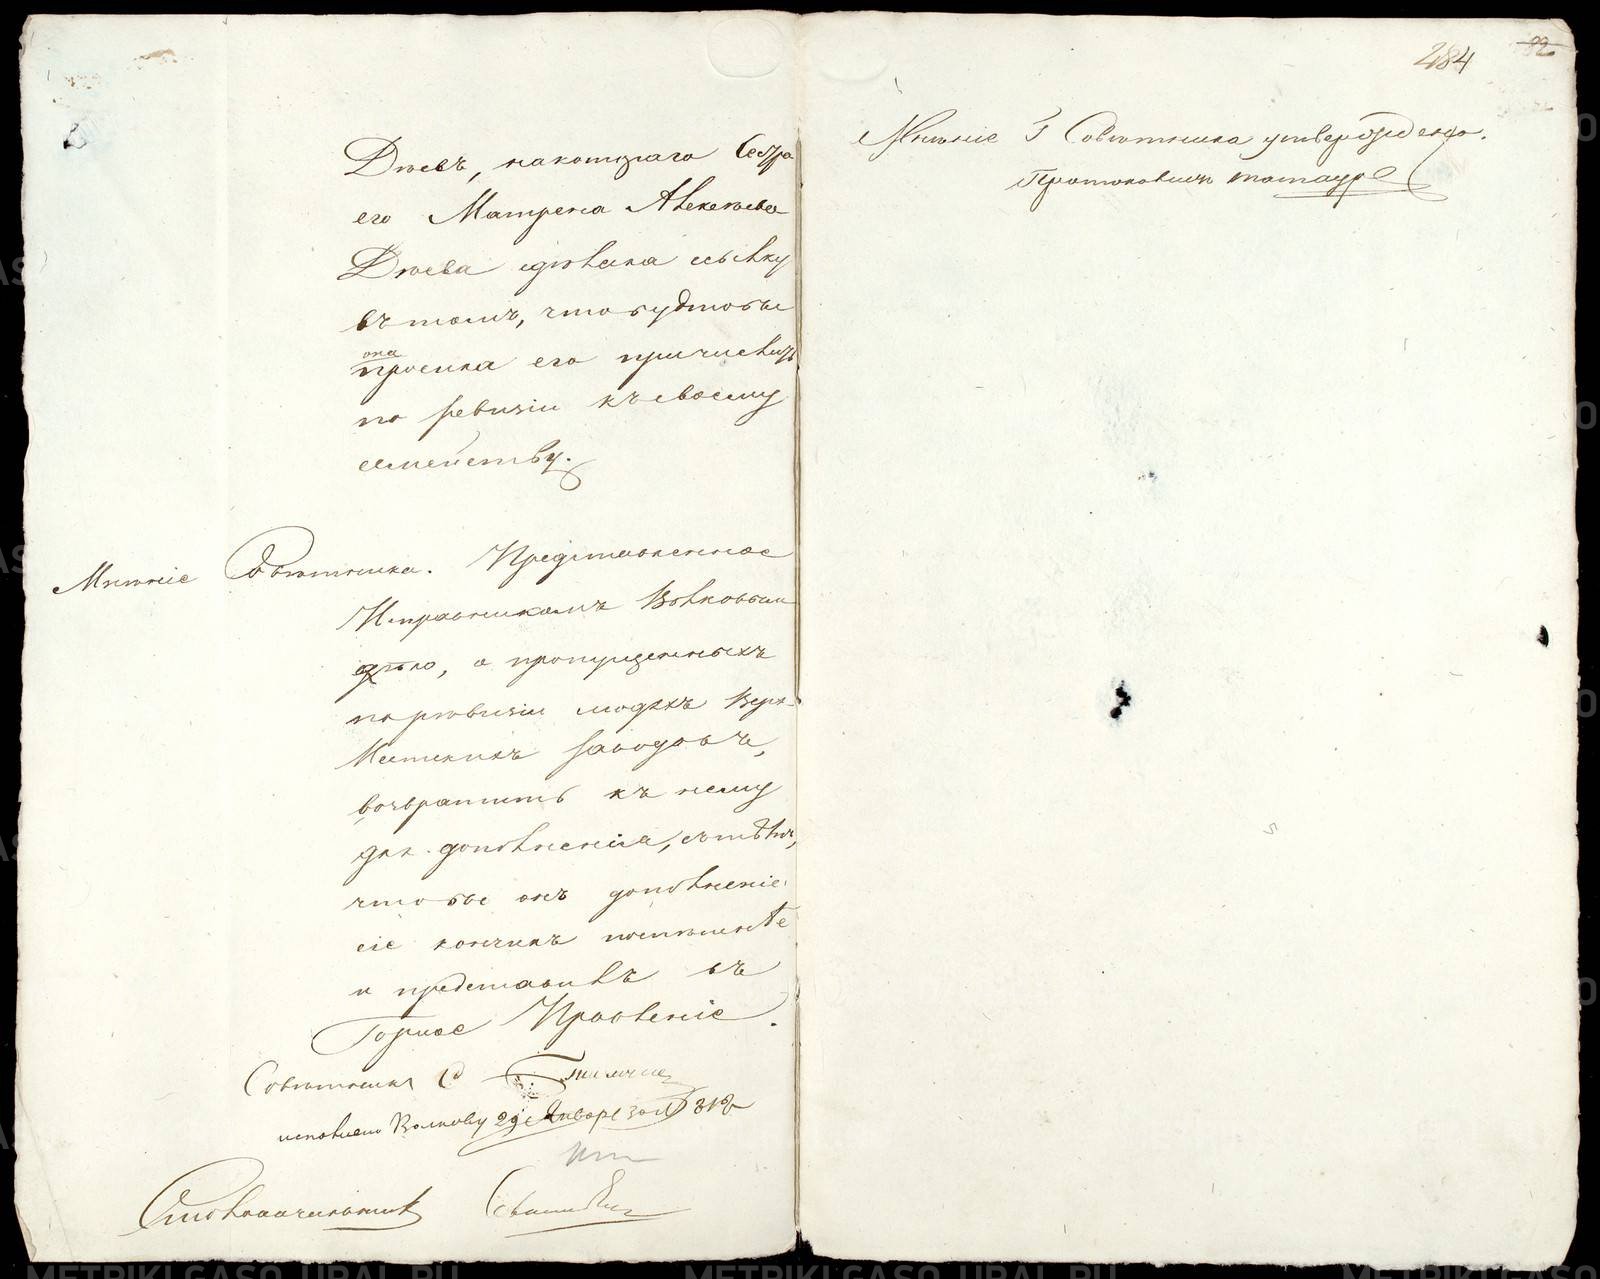 Дѣевъ, на котораго Сестра
его Матрена Алексѣева
Дѣева сдѣлала ссылку
въ томъ, что будтобы
она
просила его причислить
по ревизіи къ своему
семейству.
Мнѣніе Совѣтника. Представленное
Исправникомъ Волковымъ
дѣло, о пропущенныхъ
по ревизіи людяхъ Верх-
Исетскихъ заводовъ,
возвратить къ нему
для дополненія, съ тѣмъ,
чтобы онъ дополненіе
сіе кончилъ поспѣшнѣе
и представилъ въ
Горное Правленіе.
Совѣтникъ С
исполнено Волкову 29 Января за № 312
Столоначальникъ
284
92
Мнѣніе Г Совѣтника утверждено.